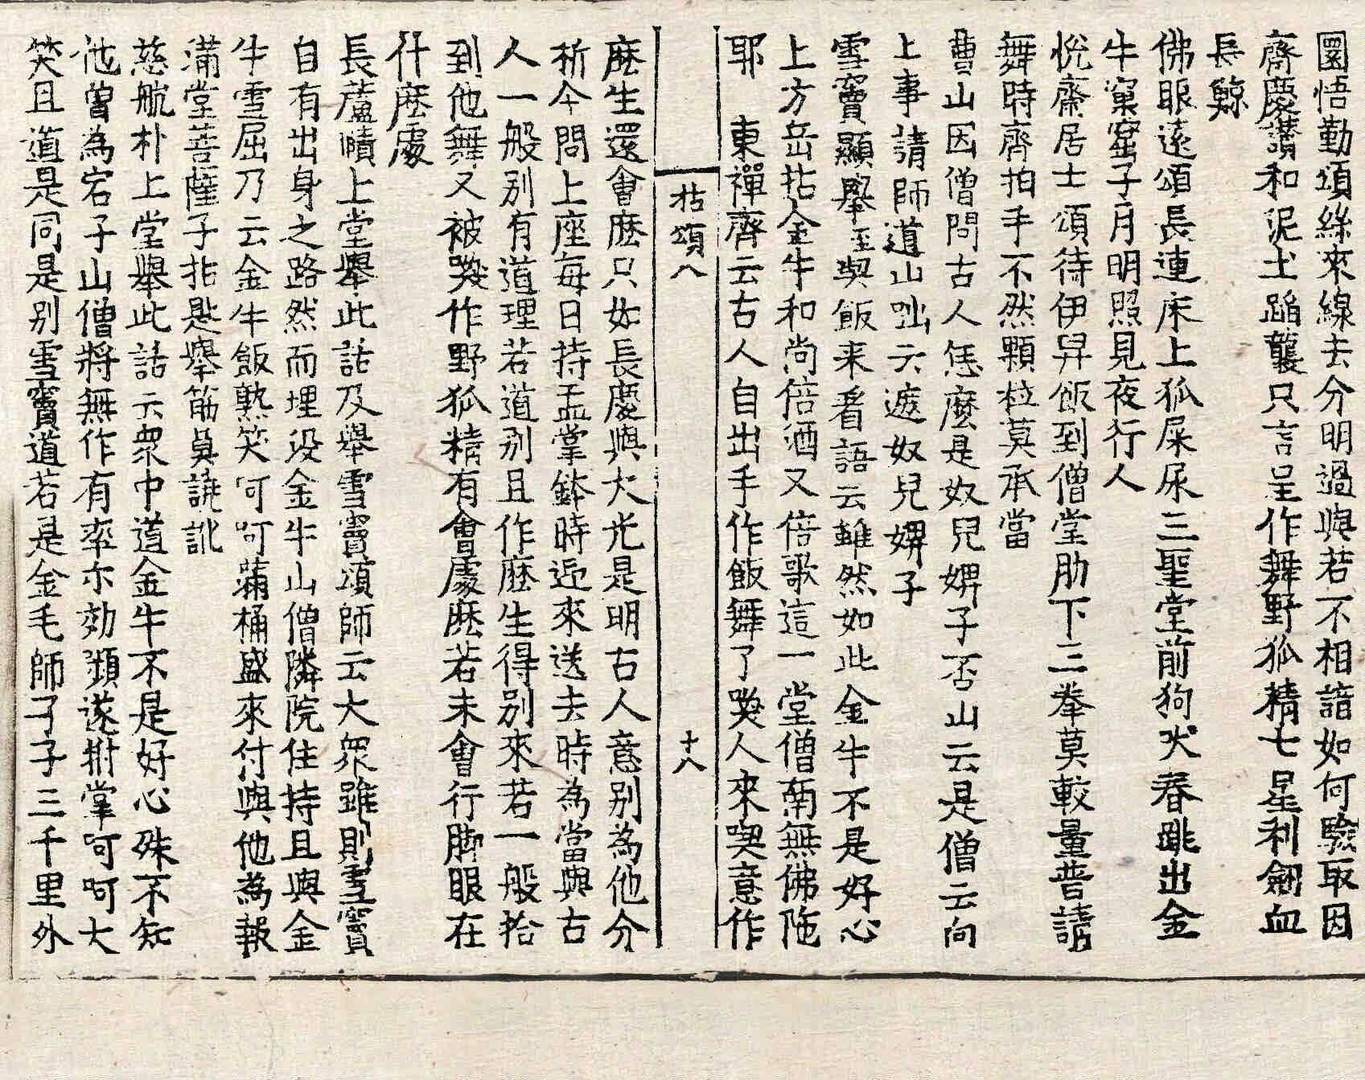 圜悟勤頌絲來線去分明過與若不相諳如何驗取因
齋慶讚和泥土蹈襲只言呈作舞野狐精七星利劒血
長鯨
佛眼遠頌長連床上狐屎尿三聖堂前狗犬春跳出金
牛窠窟子月明照見夜行人
悅齋居士頌待伊舁飯到僧堂肋下三拳莫較量普請
舞時齊拍手不然顆粒莫承當
曹山因僧問古人恁麼是奴兒婢子否山云是僧云向
上事請師道山咄云遮奴兒婢子
雪竇顯舉至與飯来看語云雖然如此金牛不是好心
上方岳拈金牛和尚倍酒又倍歌這一堂僧南無佛陁
耶　東禪齊云古人自出手作飯舞了喚人來喫意作
拈頌八　十八
麽生還會麽只如長慶與大光是明古人意别為他分
析今問上座每日持盂掌鉢時迎來送去時為當與古
人一般别有道理若道别且作麽生得别來若一般恰
到他舞又被喚作野狐精有會處麽若未會行脚眼在
什麽處
長蘆賾上堂舉此話及舉雪竇頌師云大衆雖則雪竇
自有出身之路然而埋没金牛山僧隣院住持且與金
牛雪屈乃云金牛飯熟笑呵呵滿桶盛來付與他為報
滿堂菩薩子拈匙舉筯莫誵訛
慈航朴上堂舉此話云衆中道金牛不是好心殊不知
他曾為宕子山僧將無作有率尓効顰遂拊掌呵呵大
笑且道是同是别雪竇道若是金毛師子子三千里外